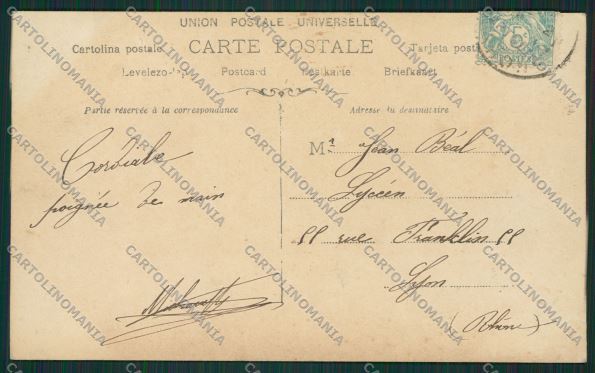 UNION POSTALE UNIVERSELLE
Cartolina postale CARTE POSTALE Tarjeta posta
Levelezo- Postcard Briefkaart
Partie réservée à la correspondance
Adresse du destinataire
Cordiale
poignée de main
Mr Jean Béal
Lycéen
rue Franklin
Lyon
(Rhône)
5
POSTES
CARTOLINOMANIA